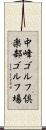 中峰ゴルフ倶
楽部ゴルフ場